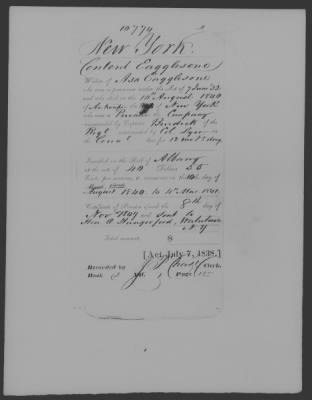 10774
New York
Content Eagglesone
Widow of Asa Eagglesone
who was a pensioner under the Act of 7 June 32
and who died on the 10 August 1840
of the State of New York
who was a Private in the Company
commanded by Captain of the
Regt commanded by Col.
in the Conn line for 12 mos 1 day
Inscribed on the Roll of Albany
at the rate of 40 Dollars 55
Cents per annum, to commence on the 10th day of
August 1840 to 4th Mar 1841.
Certificate of Pension issued the 8th day of
Nov 1849 and sent to
Hon. O Hungerford, Watertown
N.Y
[Act July 7, 1838.]
Recorded by Clerk,
Book Vol. Page